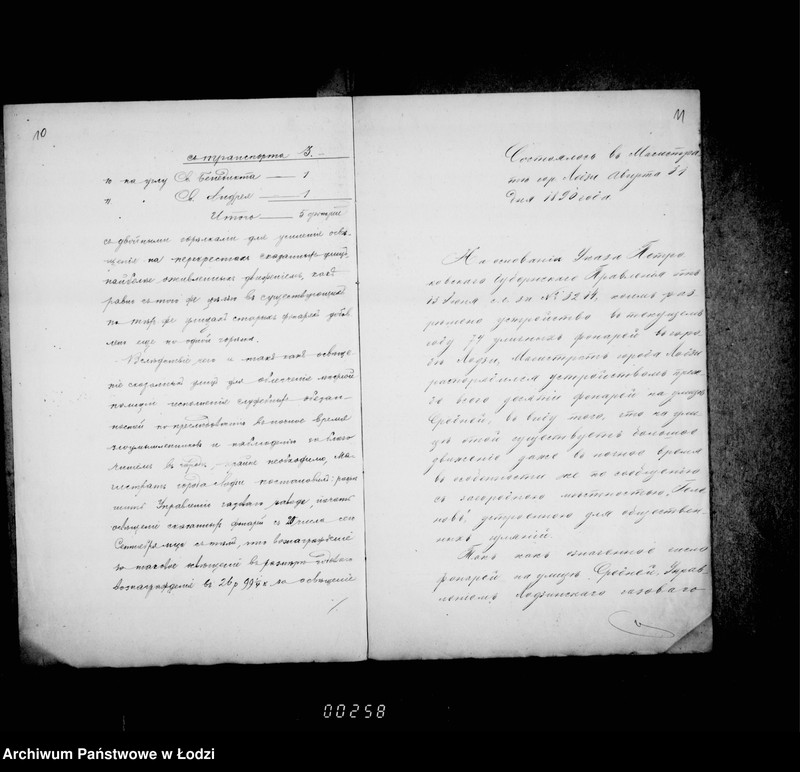 10
съ транспорта 3.
" на углу Св. Бенедикта — 1
" " Св. Андрея — 1
Итого — 5 фонарей
съ двойными горѣлками для усиленія освѣ-
щенія на перекресткахъ сказанныхъ улицъ,
наиболѣе оживленныхъ движеніемъ,
равно съ того же дня въ существующихъ
на тѣхъ же улицахъ старыхъ фонаряхъ добав-
лено еще по одной горѣлкѣ.
Вслѣдствіе чего и такъ какъ освѣще-
ніе сказанныхъ улицъ для облегченія мѣстной
полиціи исполненія служебныхъ обязан-
ностей по преслѣдованію въ ночное время
злоумышленниковъ и наблюденію за благо-
чиніемъ въ городѣ, крайне необходимо, Ма-
гистратъ города Лодзи постановилъ: разрѣ-
шить Управленію газоваго завода, начать
освѣщеніе сказанныхъ фонарей съ числа сего
Сентября мца съ тѣмъ, что вознагражденіе
за таковое освѣщеніе въ размѣрѣ годоваго
вознагражденія въ 26 р 99¼ к за освѣщеніе
11
Состоялось въ Магистра-
тѣ гор. Лодзи Августа 31
дня 1890 года
На основаніи Указа Петро-
ковскаго Губернскаго Правленія отъ
13 Іюня с.г. за № 3214, коимъ раз-
рѣшено устройство въ текущемъ
году 74 уличныхъ фонарей въ горо-
дѣ Лодзи, Магистратъ города Лодзи
распорядился устройствомъ преж-
де всего десяти фонарей на улицѣ
Средней, въ виду того, что на ули-
цѣ этой существуетъ большое
движеніе даже въ ночное время
въ особенности же по сообщенію
съ загородною мѣстностью „Геле-
новъ", устроенною для обществен-
ныхъ гуляній.
Такъ какъ означенное число
фонарей на улицѣ Средней, Управ-
леніемъ Лодзинскаго газоваго
00258
Archiwum Państwowe w Łodzi